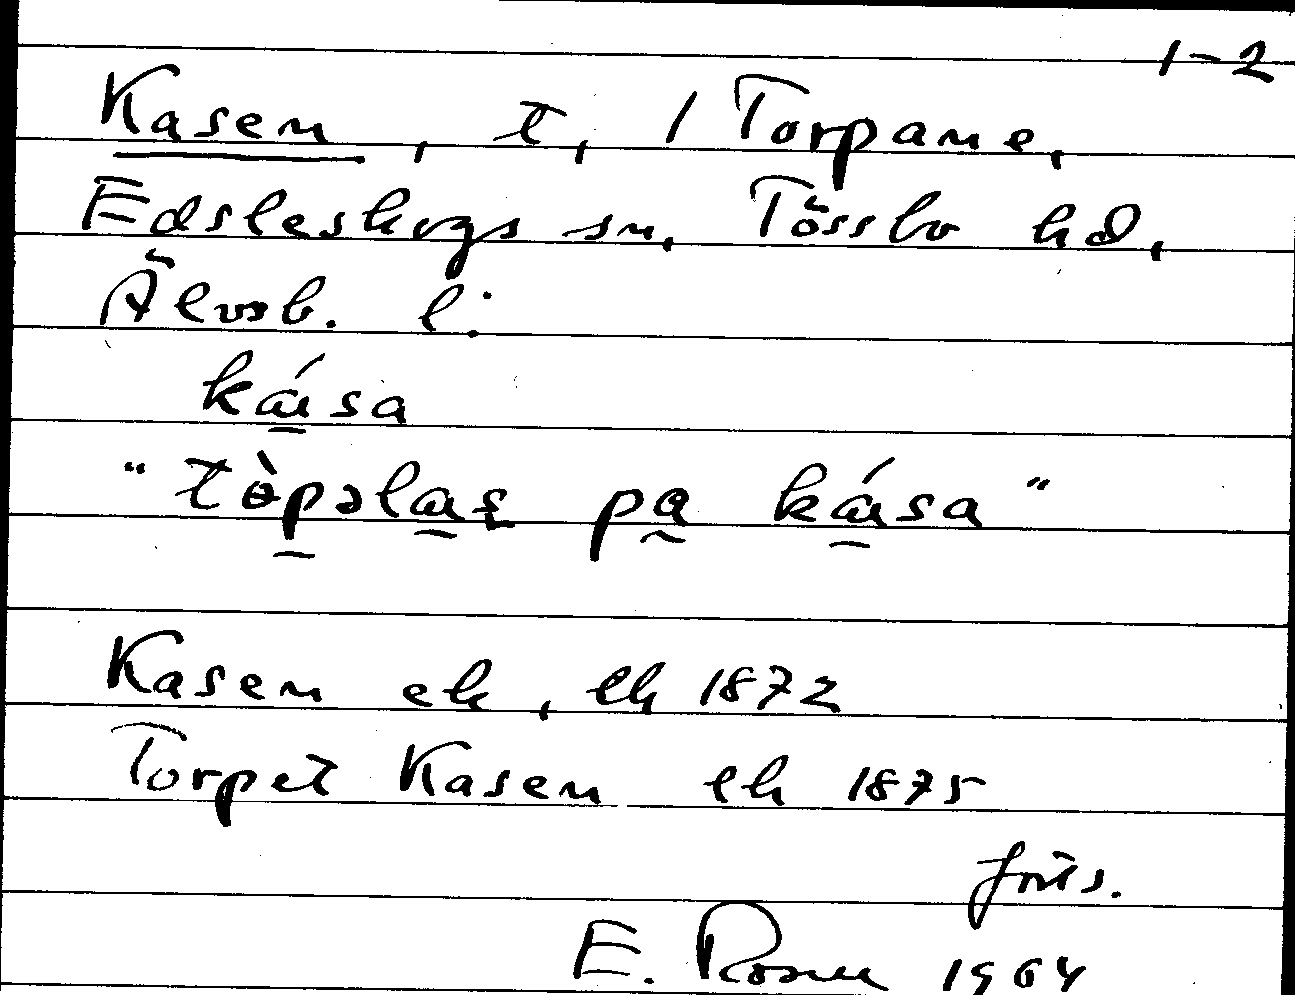 1-2
Kasen, t, 1 Torpane,
Edsleskogs sn, Tössbo hd,
Älvsb. l:
ká̱sa
"tòp̱əla̱s̱ pa̰ ká̱sa"
Kasen ek, lk 1872
Torpet Kasen lk 1875
forts.
E. Rosen 1964